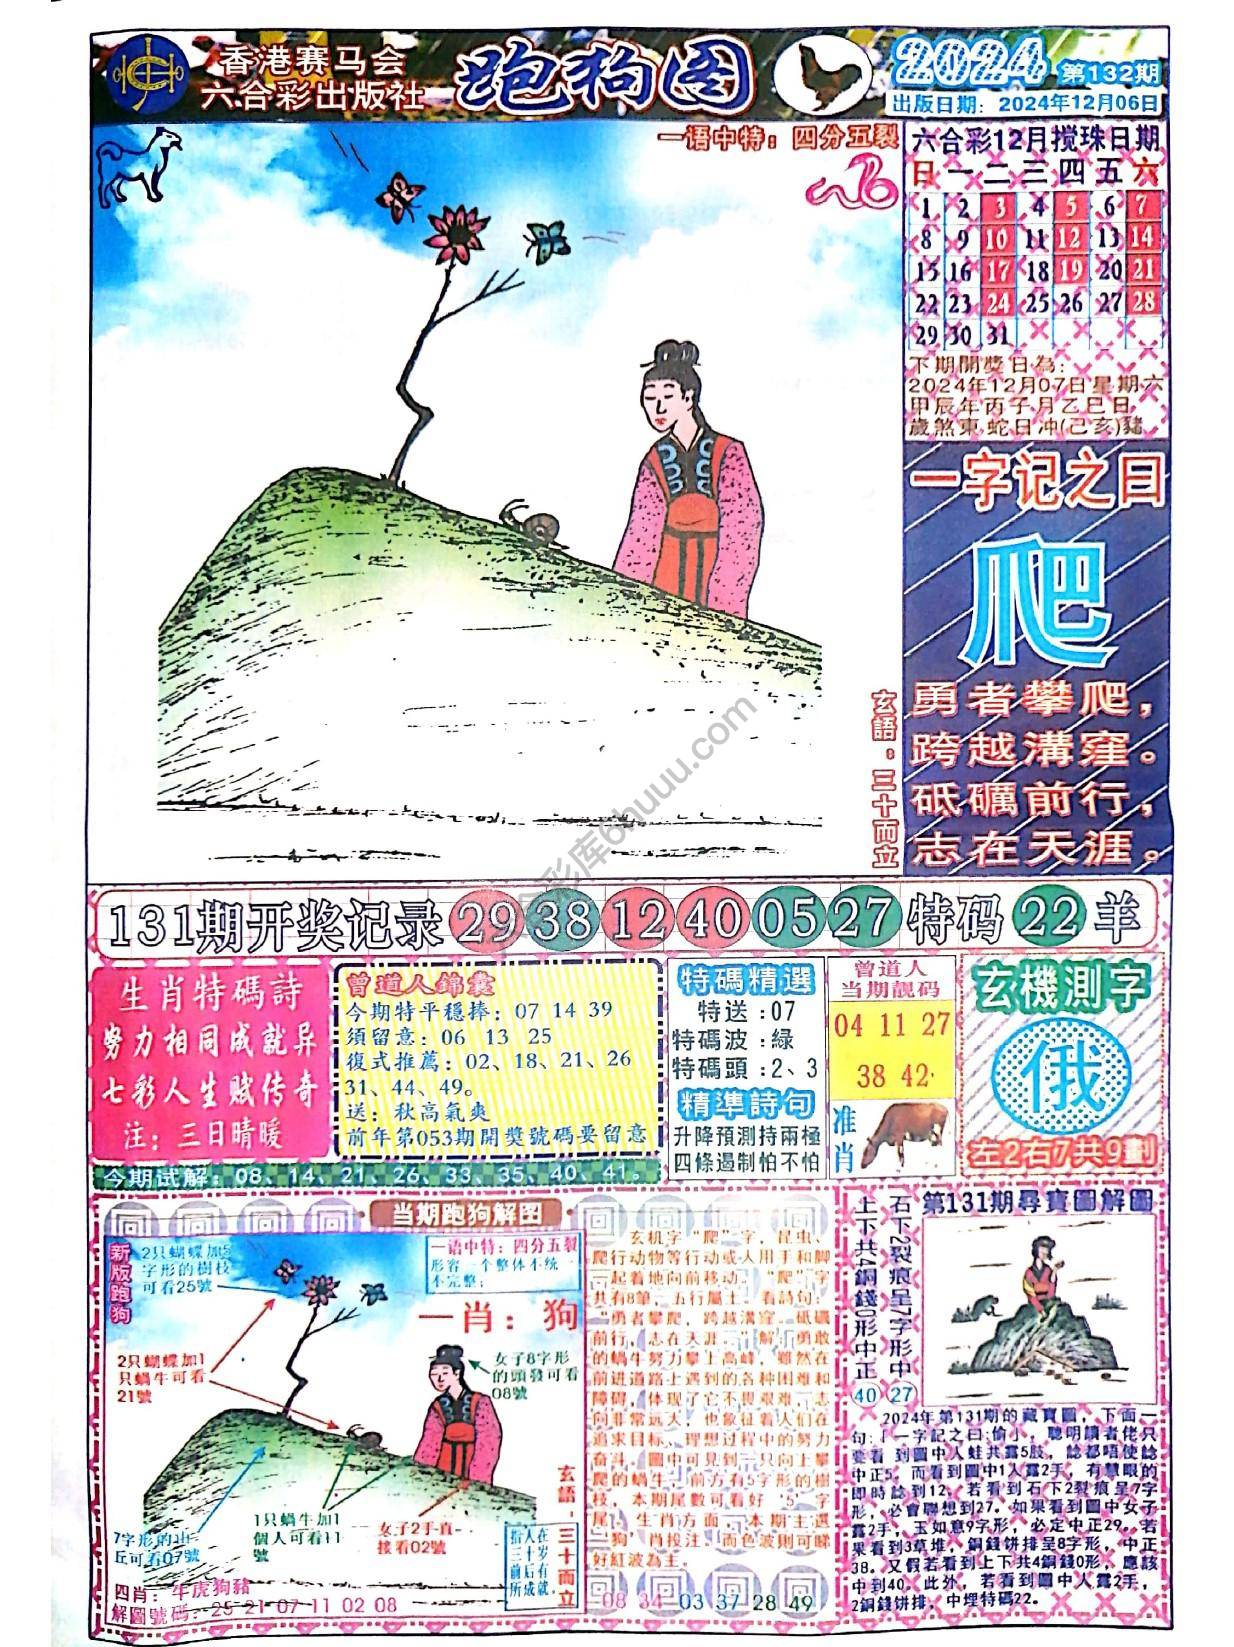 香港赛马会
六合彩出版社
跑狗图
2024 第132期
出版日期：2024年12月06日
一语中特：四分五裂
六合彩12月搅珠日期
日一二三四五六
1 2 3 4 5 6 7
8 9 10 11 12 13 14
15 16 17 18 19 20 21
22 23 24 25 26 27 28
29 30 31
下期開獎日為：
2024年12月07日星期六
甲辰年丙子月乙巳日
歲煞東 蛇日冲(己亥)豬
一字记之曰
爬
勇者攀爬，
跨越溝窪。
砥礪前行，
志在天涯。
玄語：三十而立
彩库6huuu.com
131期开奖记录 29 38 12 40 05 27 特码 22 羊
生肖特碼詩
努力相同成就异
七彩人生赋传奇
注：三日晴暖
曾道人錦囊
今期特平穩捧：07 14 39
須留意：06 13 25
復式推薦：02、18、21、26
31、44、49。
送：秋高氣爽
前年第053期開獎號碼要留意
今期试解：08、14、21、26、33、35、40、41。
特碼精選
特送：07
特碼波：綠
特碼頭：2、3
精準詩句
升降預測持兩極
四條遏制怕不怕
曾道人
当期靓码
04 11 27
38 42
准肖
玄機測字
俄
左2右7共9劃
当期跑狗解图
新版跑狗
2只蝴蝶加5
字形的樹枝
可看25號
一语中特：四分五裂
形容一个整体不统一
不完整；
一肖：狗
2只蝴蝶加1
只蝸牛可看
21號
女子8字形
的頭發可看
08號
7字形的山
丘可看07號
1只蝸牛加1
個人可看11
號
女子2手直
接看02號
指人在三十岁前后有所成就。
玄語：三十而立
四肖：牛虎狗豬
解圖號碼：25 21 07 11 02 08
玄机字“爬”字，昆虫、
爬行动物等行动或人用手和脚
一起着地向前移动。“爬”字
共有8筆，五行屬土。看詩句：
“勇者攀爬，跨越溝窪。砥礪
前行，志在天涯。”解：勇敢
的蝸牛努力攀上高峰，雖然在
前进道路上遇到的各种困难和
障碍，体现了它不畏艰难，志
向非常远大，也象征着人们在
追求目标、理想过程中的努力
奋斗。圖中可見到一只向上攀
爬的蝸牛，前方有5字形的樹
枝，本期尾數可看好“5”字
尾。生肖方面，本期主選
“狗”肖投注，而色波則可睇
好紅波為主。
08 34 03 37 28 49
第131期尋寶圖解圖
上下共4銅錢0形中正40
石下2裂痕呈7字形中27
2024年第131期的藏寶圖，下面一
句：「一字記之曰：偷」，聰明讀者佬只
要看到圖中人蛙共露5肢，諗都唔使諗
中正5。而看到圖中1人露2手，有慧眼的
即時諗到12。若看到石下2裂痕呈7字
形，必會聯想到27。如果看到圖中女子
露2手，玉如意9字形，必定中正29。若
果看到3草堆，銅錢饼排呈8字形，中正
38。又假若看到上下共4銅錢0形，應該
中到40。此外，若看到圖中人露2手，
2銅錢饼排，中埋特碼22。